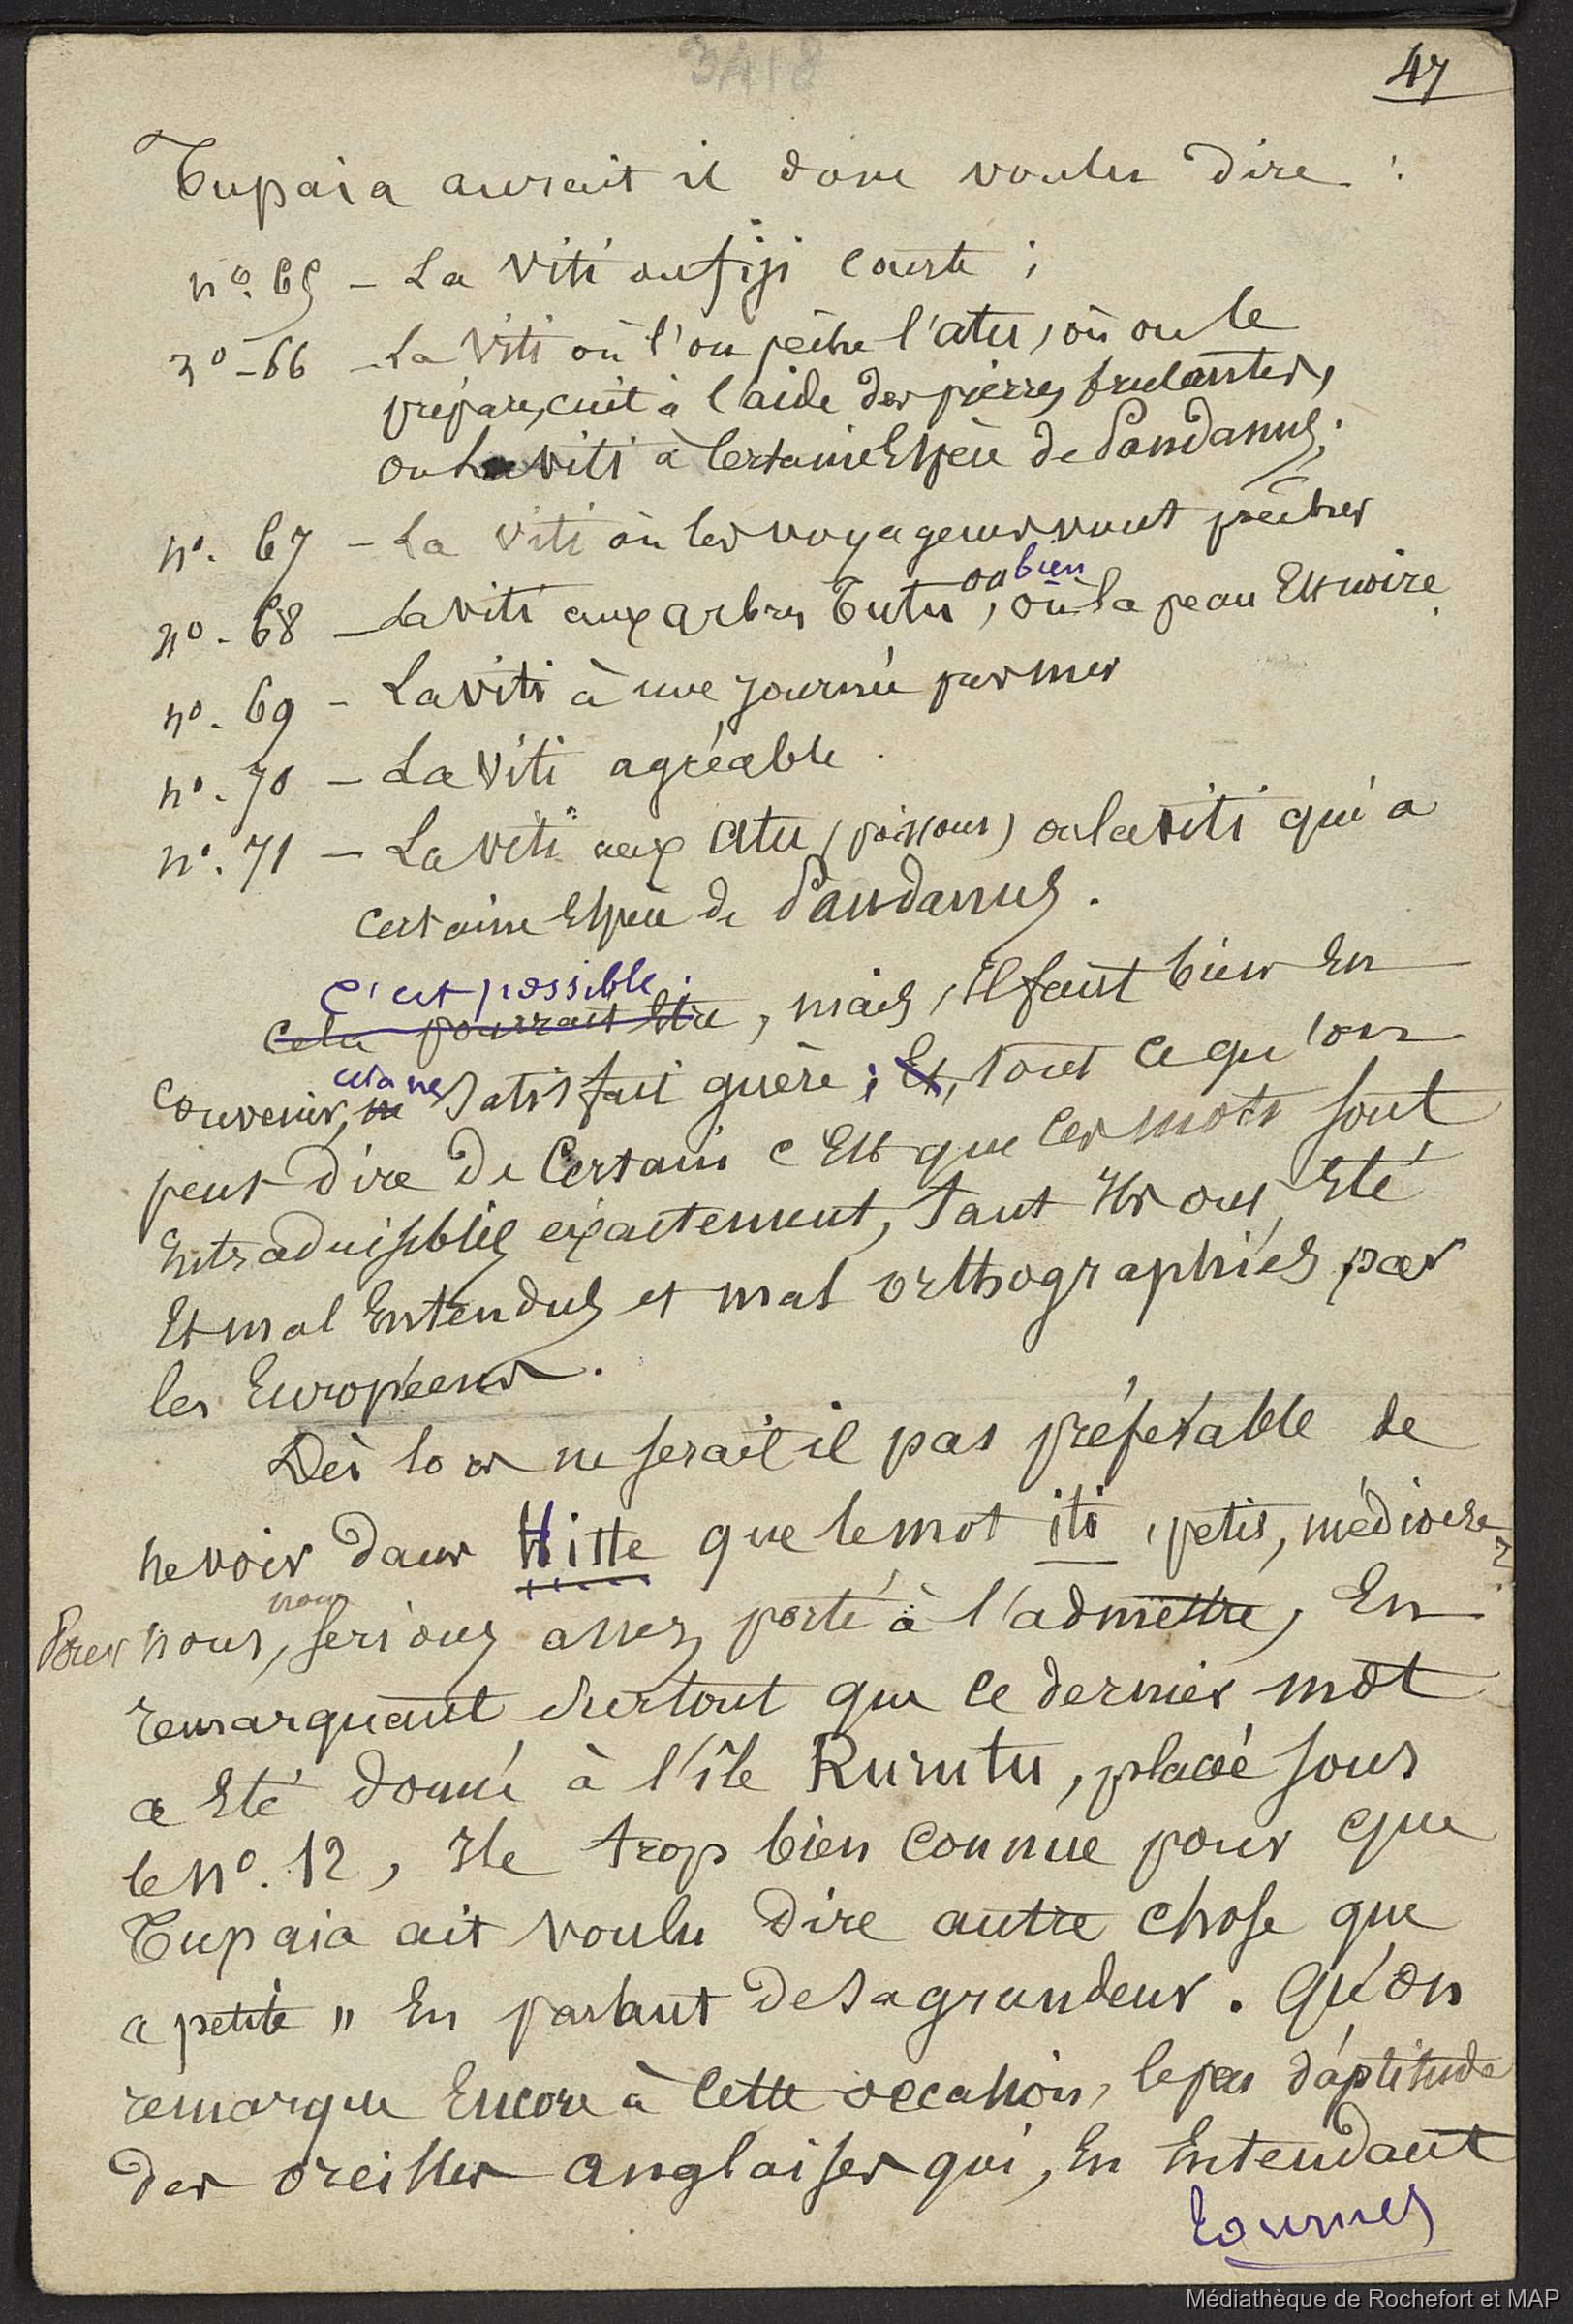 3418
47
Tupaia aurait il donc voulu dire :
n° 65 – La Viti ou fiji courte ;
n° – 66 – La Viti où l'on pêche l'atu, où on le
prépare, cuit à l'aide des pierres brulantes,
ou la viti à certaine Espèce de Pandanus ;
n°. 67 – La Viti où les voyageurs vont pêcher
ou bien
n° - 68 – La viti aux arbres Tutu, où la peau Est noire.
n° - 69 – La viti à une journée par mer
n°. 70 – La Viti agréable.
n°. 71 – La Viti aux Atu (poissons) ou la viti qui a
certaine Espèce de Pandanus.
C'est possible ;
Cela pourrait Etre, mais, il faut bien En
cela ne
Convenir, ne satisfait guère ; Et, tout ce qu'on
peut dire de Certain c'Est que ces mots sont
intraduisibles exactement, tant ils ont Eté
Et mal Entendus et mal orthographiés par
les Européens.
Dès lors ne serait il pas préférable de
ne voir dans Hitte que le mot iti, petit, médiocre ?
nous
Pour nous, serions assez porté à l'admettre, En
remarquant surtout que ce dernier mot
a Eté donné à l'île Rurutu, placée sous
le n°. 12, Ile trop bien connue pour que
Tupaia ait voulu dire autre chose que
« petite » En parlant de sa grandeur. Qu'on
remarque Encore à cette occasion, le peu d'aptitude
des oreilles anglaises qui, En Entendant
Tournez
Médiathèque de Rochefort et MAP